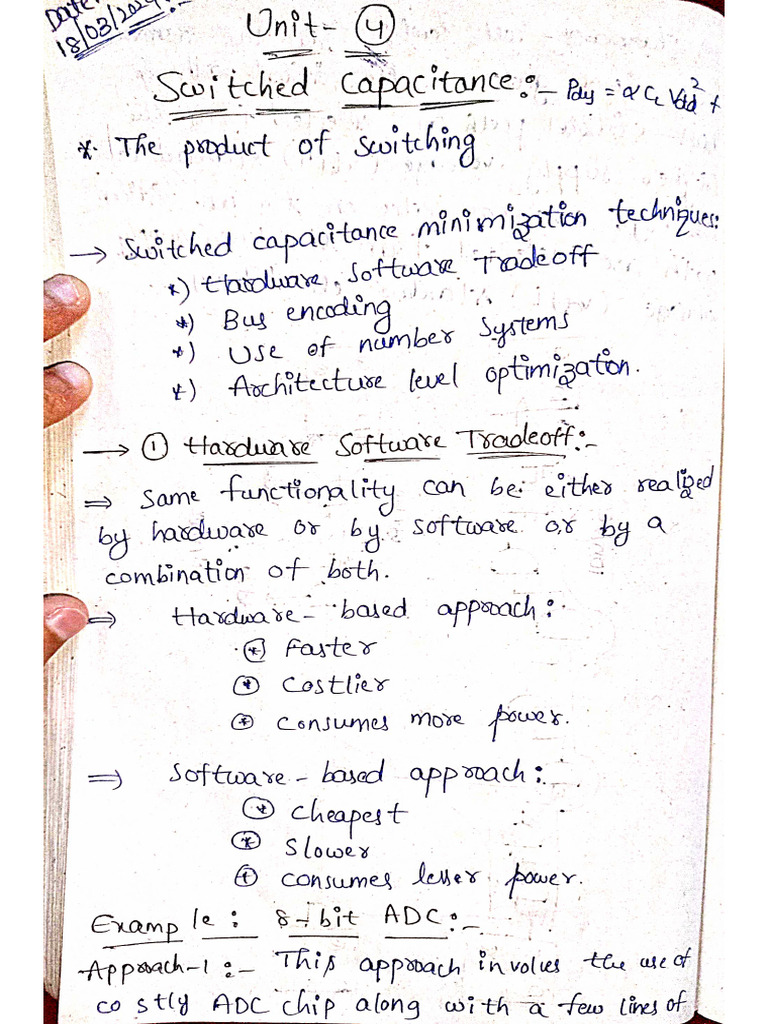 Date:
18/03/2024
Unit- 4
Switched Capacitance:- Pdy = α CL Vdd² f
* The product of switching
→ Switched capacitance minimization techniques:
*) Hardware, Software Tradeoff
*) Bus encoding
*) Use of number systems
*) Architecture level optimization.
→ ① Hardware Software Tradeoff:-
⇒ Same functionality can be either realized
by hardware or by software or by a
combination of both.
⇒ Hardware-based approach:
⊛ Faster
⊛ Costlier
⊛ Consumes more power.
⇒ Software-based approach:
⊛ Cheapest
⊛ Slower
⊛ Consumes lesser power.
Example: 8-bit ADC:-
Approach-1:- This approach involves the use of
costly ADC chip along with a few lines of